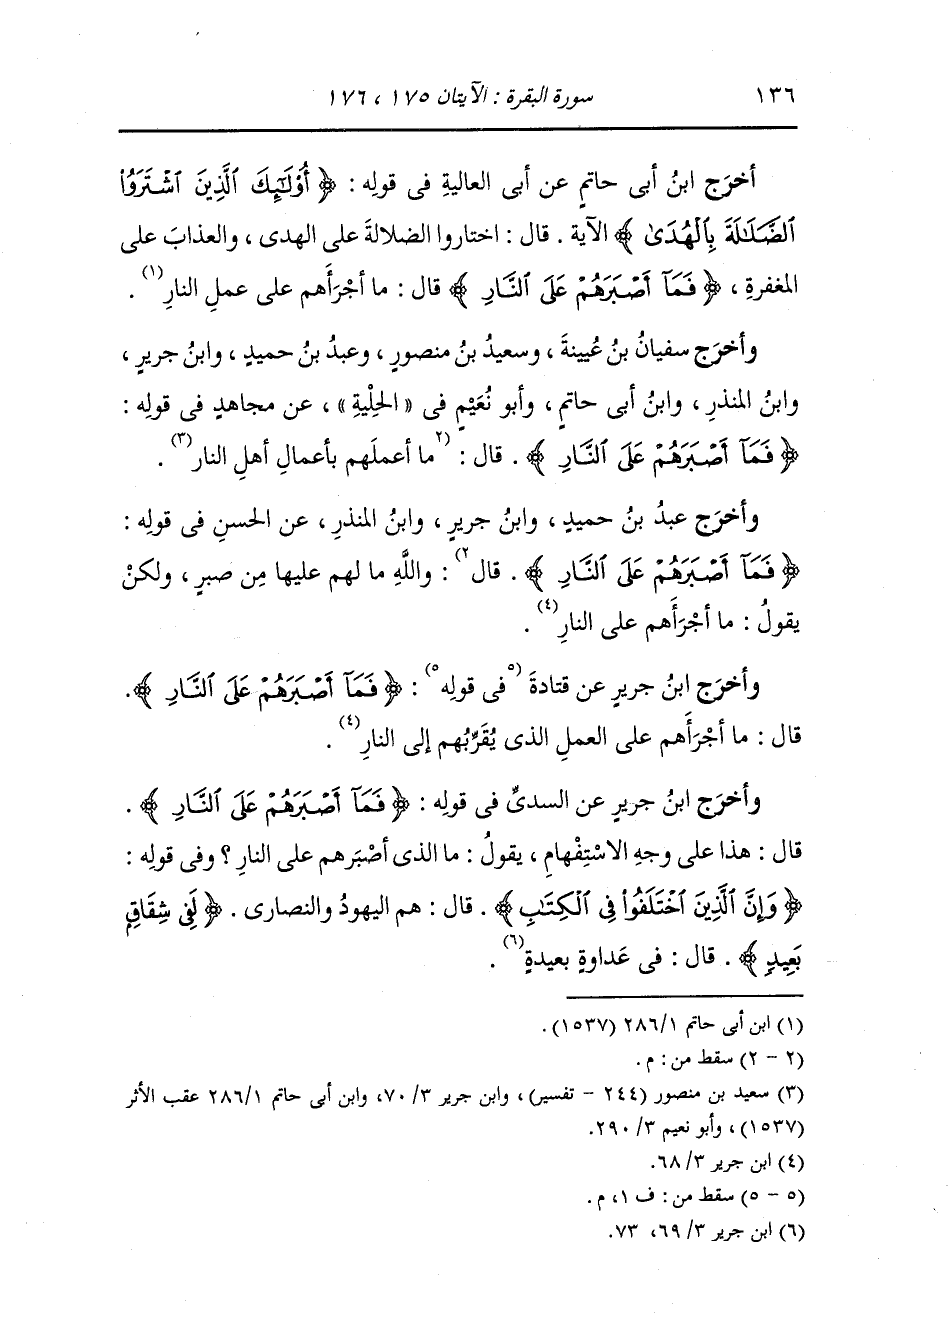 ١٣٦ سورة البقرة : الآيتان ١٧٥ ، ١٧٦
أخرَج ابنُ أبى حاتمٍ عن أبى العاليةِ فى قولِه : ﴿ أُوْلَٰٓئِكَ ٱلَّذِينَ ٱشْتَرَوُاْ
ٱلضَّلَٰلَةَ بِٱلْهُدَىٰ ﴾ الآية . قال : اختاروا الضلالةَ على الهدى ، والعذابَ على
المغفرةِ ، ﴿ فَمَآ أَصْبَرَهُمْ عَلَى ٱلنَّارِ ﴾ قال : ما أجْرَأَهم على عملِ النارِ(١) .
وأخرَج سفيانُ بنُ عُيينةَ ، وسعيدُ بنُ منصورٍ ، وعبدُ بنُ حميدٍ ، وابنُ جريرٍ ،
وابنُ المنذرِ ، وابنُ أبى حاتمٍ ، وأبو نُعَيْمٍ فى «الحِلْيةِ» ، عن مجاهدٍ فى قولِه :
﴿ فَمَآ أَصْبَرَهُمْ عَلَى ٱلنَّارِ ﴾ . قال : (٢ما أعملَهم بأعمالِ أهلِ النارِ(٣) .
وأخرَج عبدُ بنُ حميدٍ ، وابنُ جريرٍ ، وابنُ المنذرِ ، عن الحسنِ فى قولِه :
﴿ فَمَآ أَصْبَرَهُمْ عَلَى ٱلنَّارِ ﴾ . قال٢) : واللَّهِ ما لهم عليها مِن صبرٍ ، ولكنْ
يقولُ : ما أجْرَأَهم على النارِ(٤) .
وأخرَج ابنُ جريرٍ عن قتادةَ (٥فى قولِه٥) : ﴿ فَمَآ أَصْبَرَهُمْ عَلَى ٱلنَّارِ ﴾ .
قال : ما أجْرَأَهم على العملِ الذى يُقَرِّبُهم إلى النارِ(٤) .
وأخرَج ابنُ جريرٍ عن السدىِّ فى قولِه : ﴿ فَمَآ أَصْبَرَهُمْ عَلَى ٱلنَّارِ ﴾ .
قال : هذا على وجهِ الاسْتِفْهامِ ، يقولُ : ما الذى أصْبَرهم على النارِ ؟ وفى قولِه :
﴿ وَإِنَّ ٱلَّذِينَ ٱخْتَلَفُواْ فِى ٱلْكِتَٰبِ ﴾ . قال : هم اليهودُ والنصارى . ﴿ لَفِى شِقَاقٍۭ
بَعِيدٍ ﴾ . قال : فى عَداوةٍ بعيدةٍ(٦) .
(١) ابن أبى حاتم ٢٨٦/١ (١٥٣٧) .
(٢ - ٢) سقط من : م .
(٣) سعيد بن منصور (٢٤٤ - تفسير) ، وابن جرير ٣/ ٧٠، وابن أبى حاتم ٢٨٦/١ عقب الأثر
(١٥٣٧) ، وأبو نعيم ٣/ ٢٩٠.
(٤) ابن جرير ٣/ ٦٨.
(٥ - ٥) سقط من : ف ١، م .
(٦) ابن جرير ٣/ ٦٩، ٧٣.